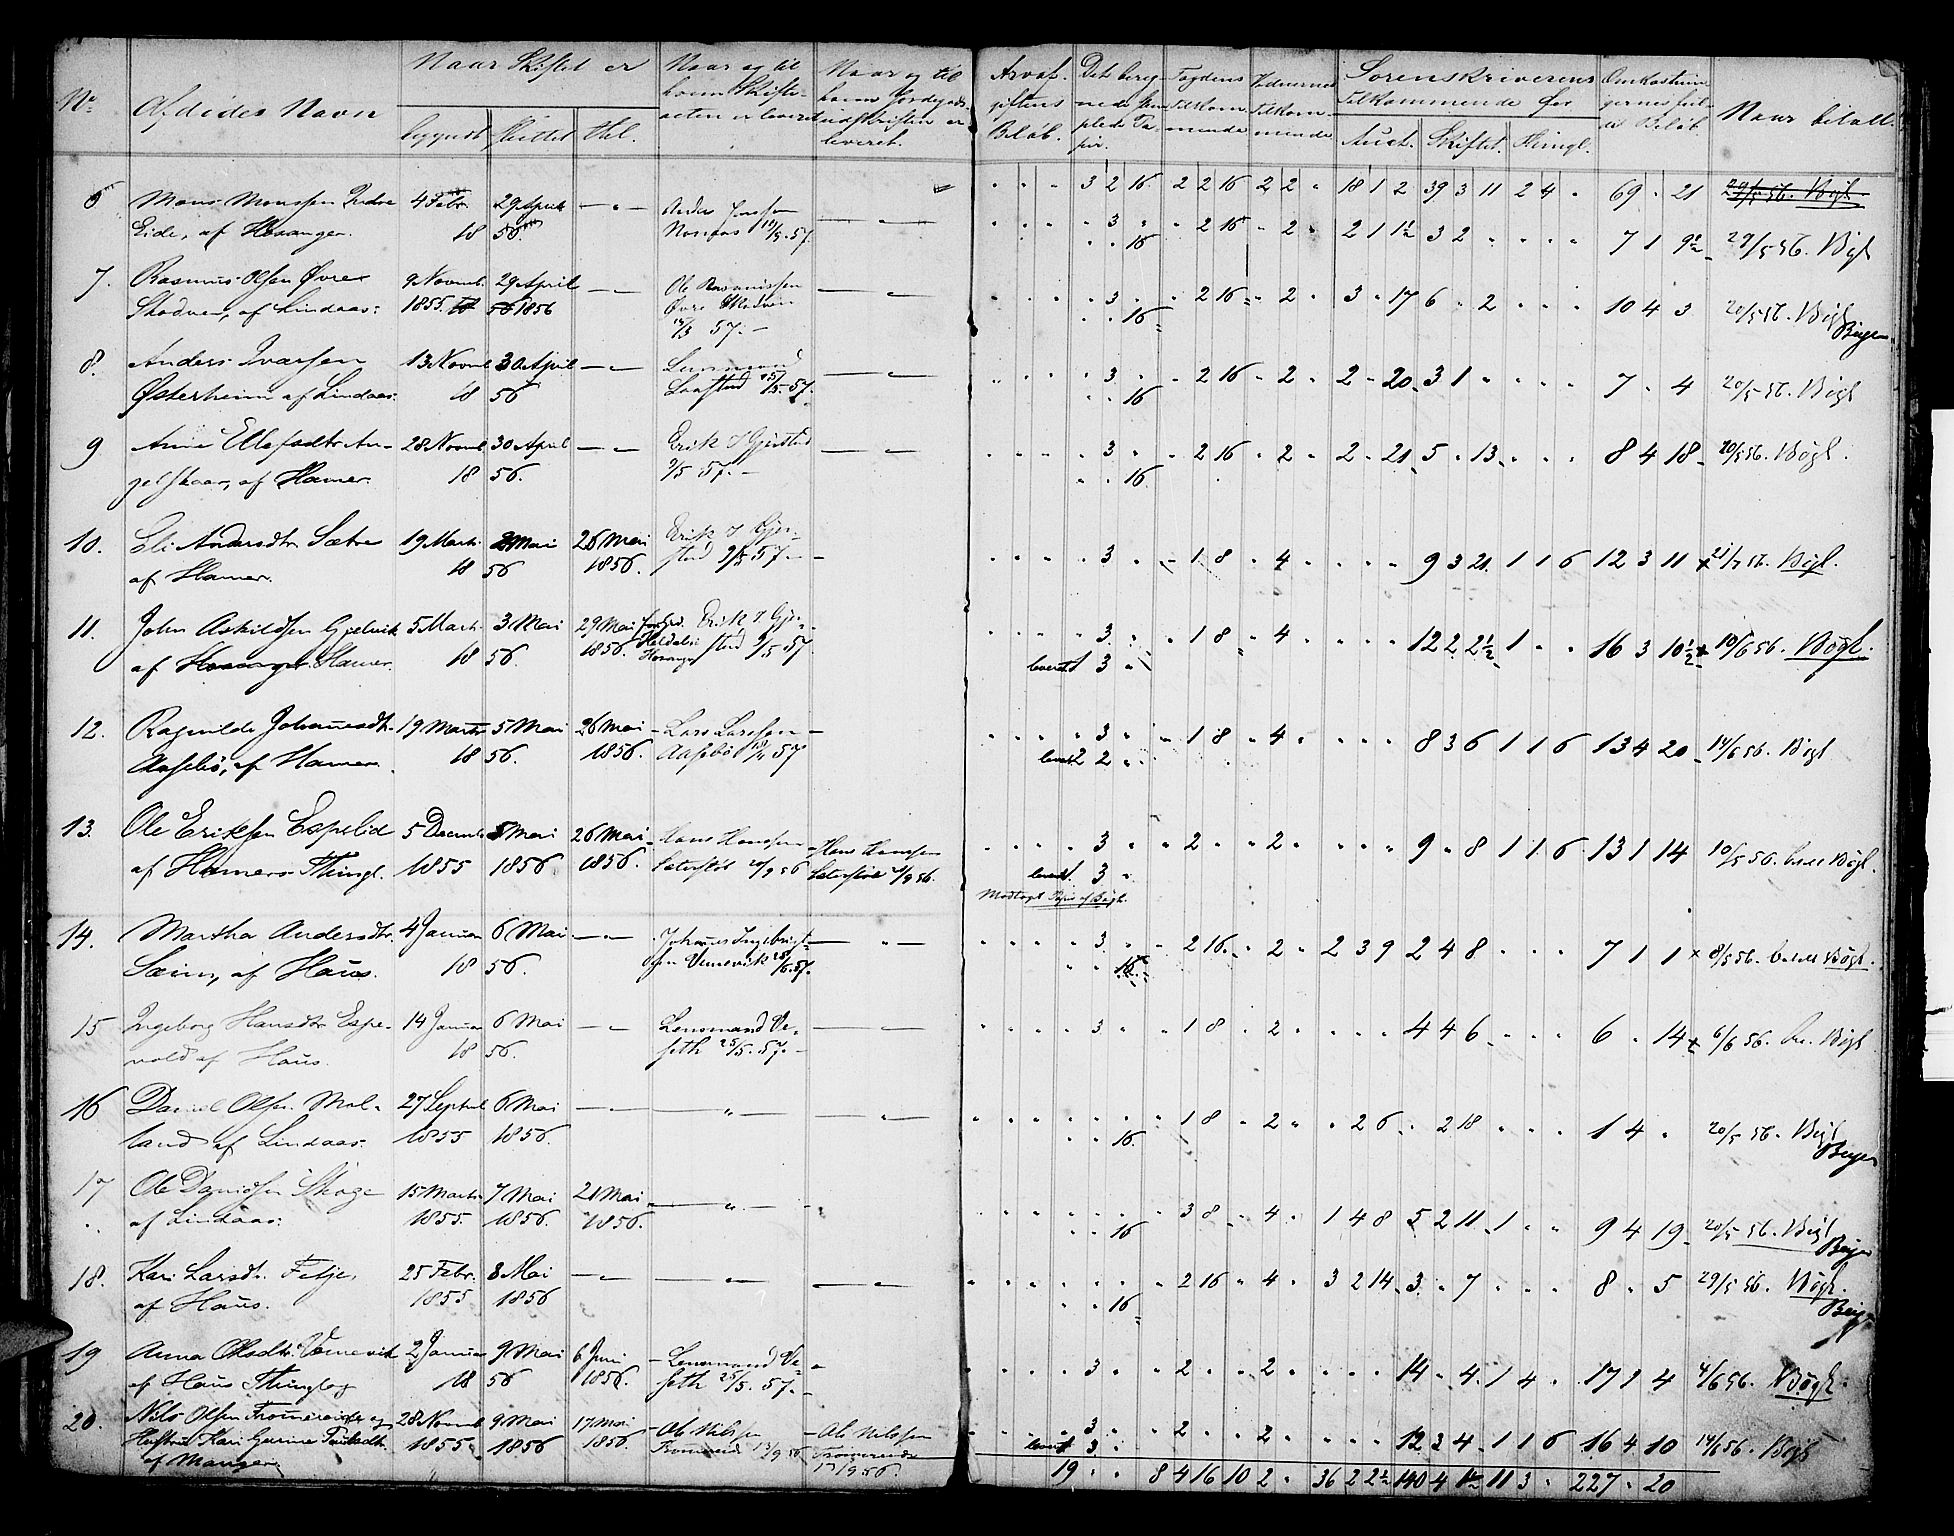 No. Afdødes Navn Naar Skiftet er Naar og til hvem Skifteacten er leveret Naar og til hvem Jordegodsudskriften er leveret.
begyndt sluttet thl.
Arveafgiftens Beløb. Det beregnede stemplede Papir. Fogdens Tilkommende Vidnernes Tilkommende Sorenskriverens Tilkommende for Omkostningernes fulde Beløb Naar betalt.
Auct. Skiftet. Thingl.
6 Mons Monssen Indre 4 Febr. 29 April — " — Anders — " — 3 2 16 2 2 16 2 2 " 18 1 2 39 3 11 2 4 " 69 " 21 29/5 56. Bøgl.
Eide, af Hosanger. 18 56. 57. 3 " " 2 16 " 2 " 2 1 1½ 3 2 " " " " 7 1 9½ 29/5 56. Bøgl
16
7. Rasmus Olsen Øvre 9 Novemb. 29 April — " — Ole Rasmussen — " — 3 " " 2 16 " 2 " 3 " 17 6 " 2 " " " 10 4 3 20/5 56. Bøgl
Skodven, af Lindaas: 1855. 1856 Øvre Skodven 16 Beyer
57. —
8. Anders Ivarsen 13 Novmb 30 April — " — Lensmand — " — 3 " " 2 16 " 2 " 2 " 20 3 1 " " " " 7 " 4 20/5 56. Bøgl
Østerheim af Lindaas. 18 56 25/5 57. 16
9 Anne Ellefsdtr An- 28 Novmb 30 April — " — Erik Gjerstad — " — 3 " " 2 16 " 2 " 2 " 21 5 " 13 " " " 8 4 18 20/5 56. Bøgl.
gelskaar, af Hamer. 18 56. 9/5 57. — 16
10. Eli Andersdtr Sætre 19 Marts 2 Mai 26 Mai Erik Gjer- 3 " 1 8 " 4 " " " " 9 3 21 1 1 6 12 3 11 21/7 56. Bøgl.
af Hamer. 18 56 1856. stad 9/5 57. —
11. John Askildsen Gjelvik 5 Marts 3 Mai 29 Mai Erik Gjer- 3 " " 1 8 " 4 " " " " 12 2 2½ 1 " " 16 3 10½ 10/6 56. Bøgl.
af Hosanger Hamer. 18 56. 1856. Hosanger stad 9/5 57 leveret 1 3 "
12. Ragnilde Johannesdtr. 19 Marts 5 Mai 26 Mai — Lars Larssen — 3 " " 1 8 " 4 " " " " 8 3 6 1 1 6 13 4 20 14/6 56. Bøgl
Aasebø, af Hamer. 18 56. 1856. Aasebø 57 leveret 2 2 "
13. Ole Eriksen Espelid 5 Decemb 5 Mai 26 Mai Hans Hanssen Hans Hanssen 3 " " 2 " " 2 " " " " 9 " 8 1 1 6 13 1 14 10/5 56. betalt Bøgl.
af Hamers Thingl. 1855 1856 1856. 9 56 9 56. leveret 1 3 "
Modtaget Papir af Bøgh.
14. Martha Andersdtr 4 Januar 6 Mai — " — Johannes Ingebrigt- — " — 3 " " 2 16 " 2 " 2 3 9 2 4 8 " " " 7 1 1 8/5 56. betalt Bøgl.
Sæim, af Haus. 18 56. sen Vemevik 57. 16
15 Ingeborg Hansdtr Espe- 14 Januar 6 Mai — " — Lensmand Ve- — " — 3 " " 1 8 " 2 " " " " 4 4 6 " " " 6 " 14 6/6 56. Bøgl
vold af Haus. 18 56. seth 25/5. 57. —
16 Daniel Olsen Mol- 27 Septbr 6 Mai — " — — " — — " — 1 8 " 2 " " 2 6 " 2 18 " " " 1 4 " 20/5 56. Bøgl
land af Lindaas. 1855 1856. 16 Beyer
17 Ole Davidsen Skoge 15 Marts 7 Mai 21 Mai — " — 3 8 " 4 " 1 4 8 5 2 11 1 " " 9 4 19 20/5 56. Bøgl
af Lindaas: 1855. 1856. 1856. 16 Beyer
18. Kari Larsdtr. Fetje, 25 Febr. 8 Mai — " — — " — — " — 2 16 " 4 " 3 2 14 3 " 7 " " " 8 " 5 29/5 56. Bøgl.
af Haus. 1855 1856 16 Beyer
19 Anna Olsdtr Vemevik 2 Januar 9 Mai 6 Juni — Lensmand Ve- 3 " " 2 " " 2 " " " " 14 " 4 1 4 " 17 1 4 4/6 56. Bøgl.
af Haus Thinglag 18 56 1856. seth 25/5. 57. —
20. Nils Olsen 28 Novmb 9 Mai 17 Mai — Ole Nilssen — Ole Nilssen 3 " " 2 " " 2 " " " " 12 3 4 1 1 6 16 4 10 14/6 56. Bøgl
Hustru Kari Gurine 1855. 1856 1856. 13/9 56 leveret 1 3 "
af Manger. 13/9 56.
19 " " 8 4 16 10 2 " 36 2 2½ 140 4 1½ 11 3 " 227 " 20